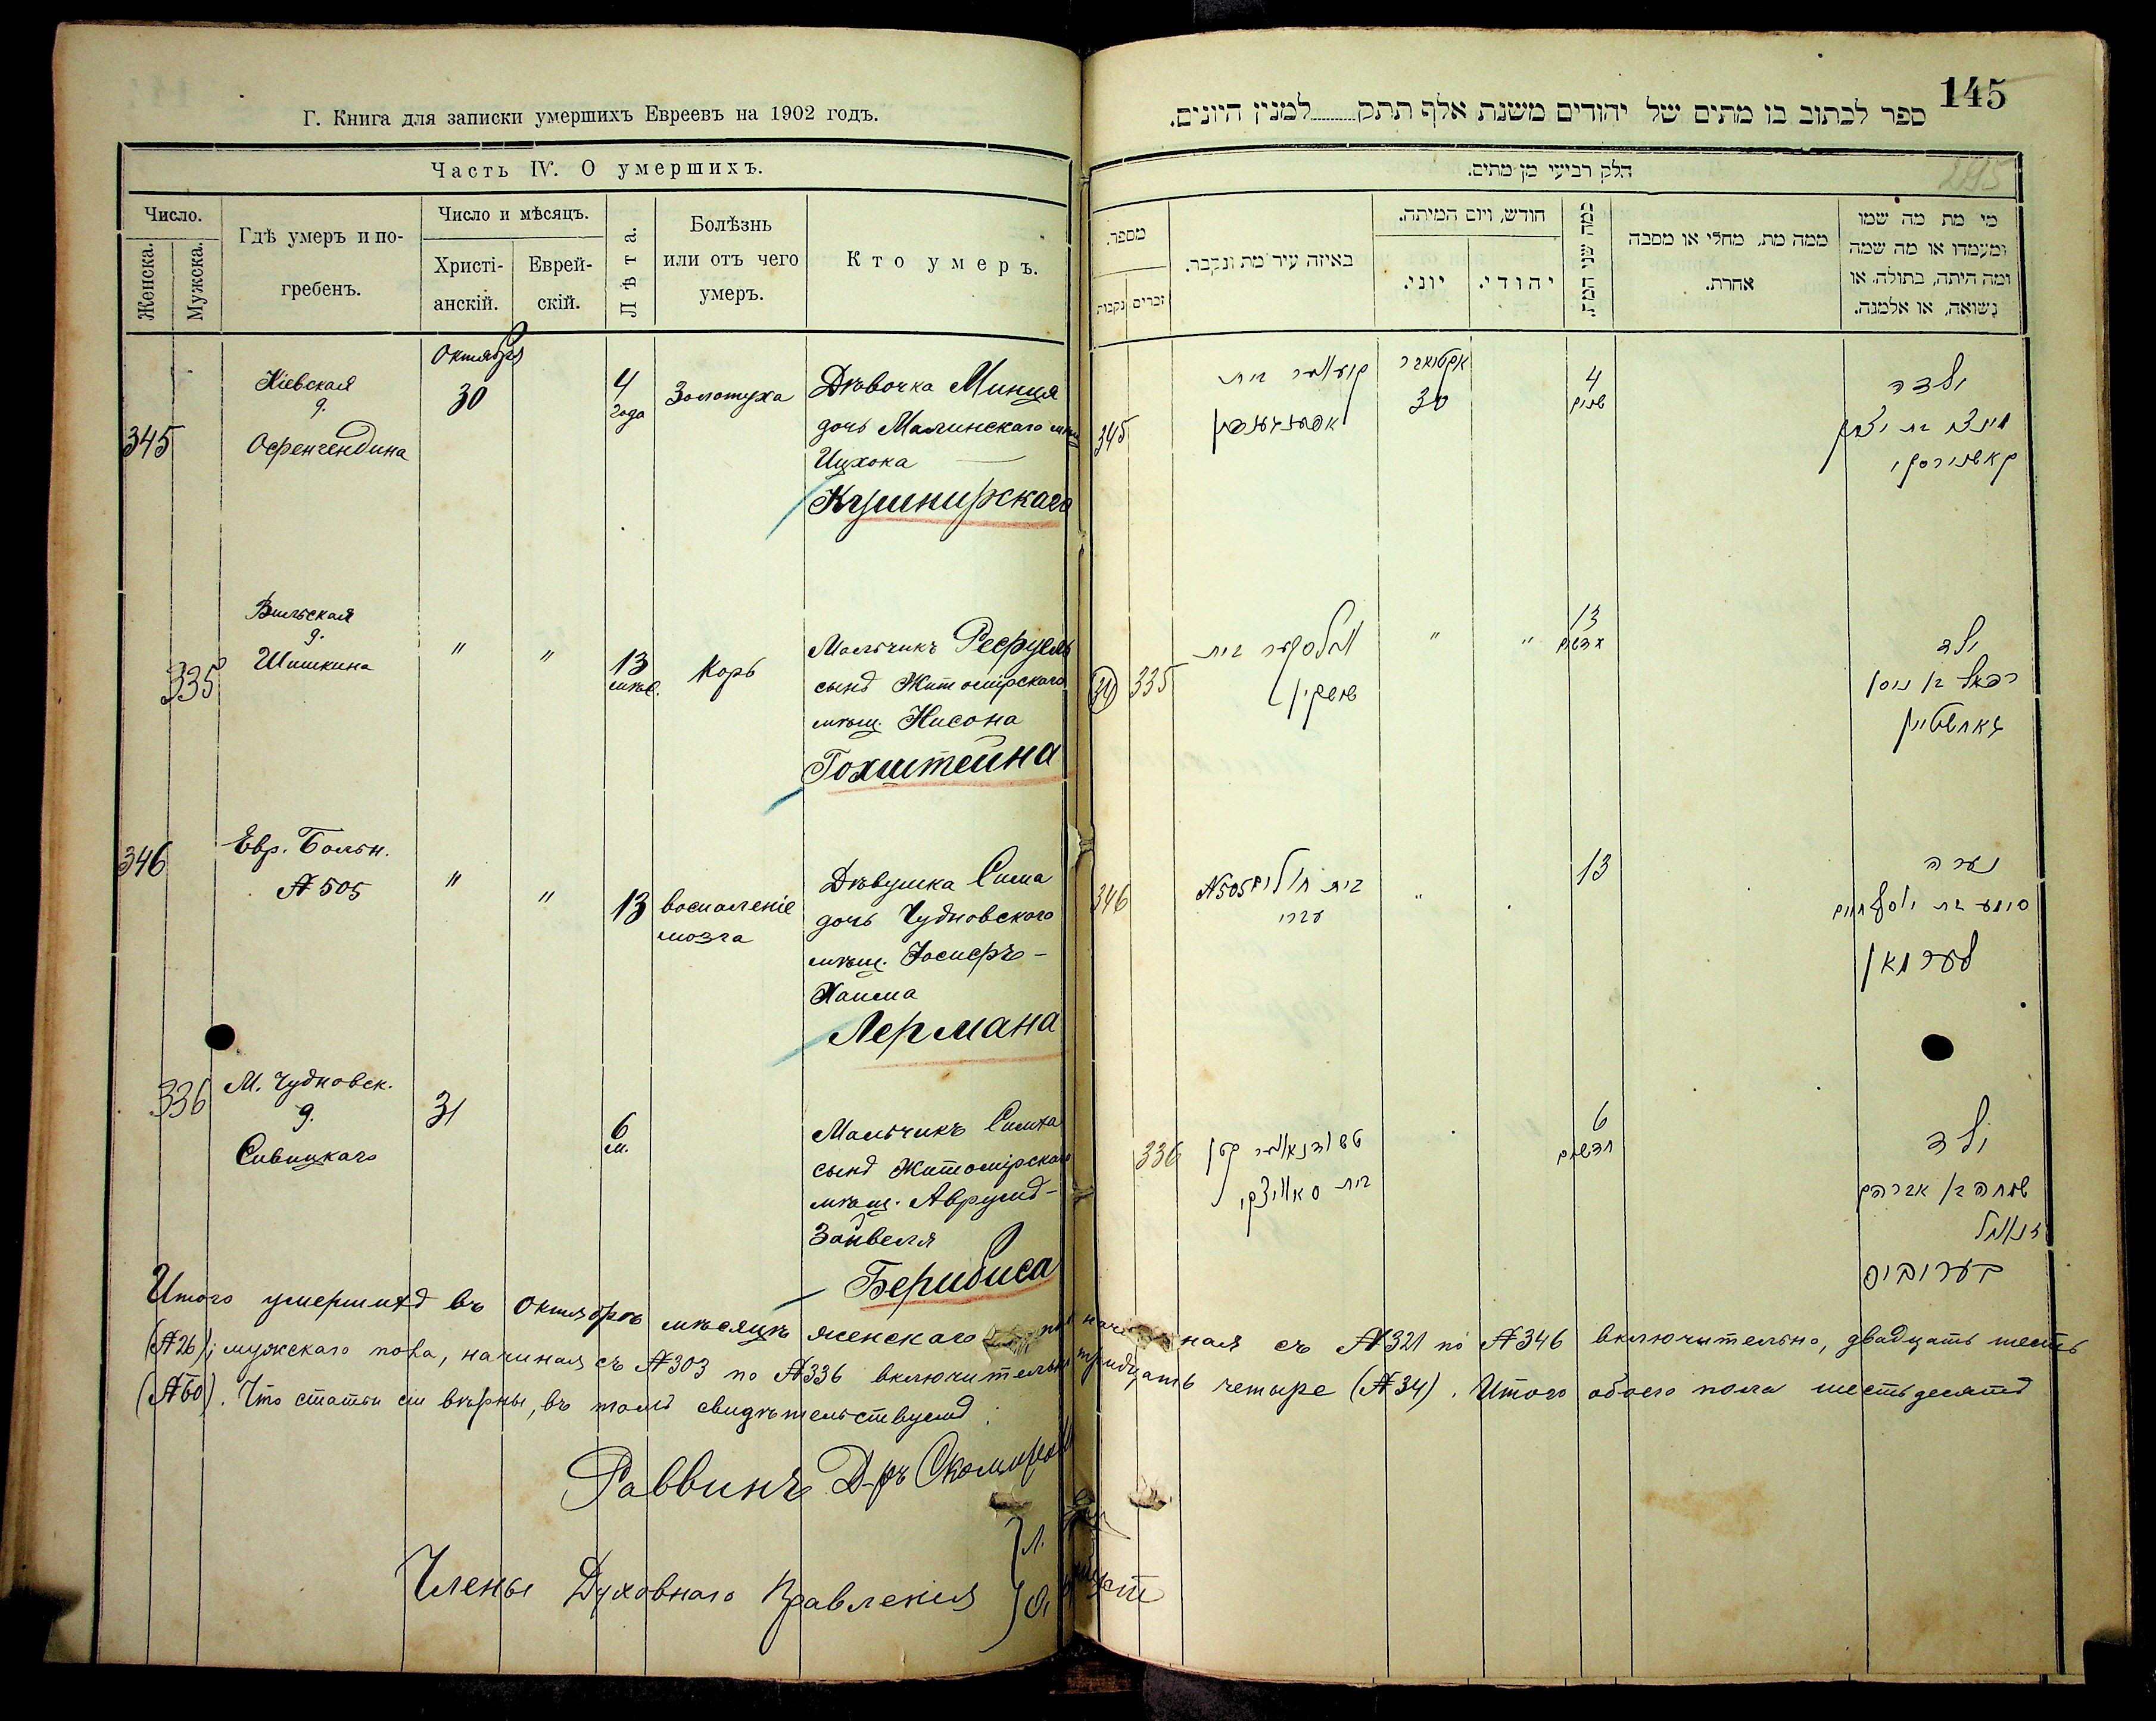 Г. Книга для записки умершихъ Евреевъ на 1902 годъ.
Часть IV. О умершихъ.
Число.
Женска.
Мужска.
Гдѣ умеръ и по-
гребенъ.
Число и мѣсяцъ.
Христі-
анскій.
Еврей-
скій.
Лѣта.
Болѣзнь
или отъ чего
умеръ.
Кто умеръ.
345
Кіевская
д.
Офренгендина
Октября
30
4
года
Золотуха
Дѣвочка Минця
дочь Малинскаго мѣщ
Ицхока
Кушнирскаго
335
Вильская
д.
Шишкина
"
"
13
мѣс.
Корь
Мальчикъ Рефуель
сынъ Житомірскаго
мѣщ. Нисона
Гохштейна
346
Евр. Больн.
№ 505
"
"
13
воспаленіе
мозга
Дѣвушка Сима
дочь Чудновскаго
мѣщ. Іосифъ-
Хаима
Лермана
336
М. Чудновск.
д.
Сивицкаго
31
6
м.
Мальчикъ Симха
сынъ Житомірскаго
мѣщ. Аврумъ-
Зайвеля
Берибиса
145
ספר לכתוב בו מתים של יהודים משנת אלף תתק למנין היונים.
295
חלק רביעי מן מתים.
מספר.
נקבות
זכרים
באיזה עיר מת ונקבר.
חודש, ויום המיתה.
יוני.
יהודי.
כמה שני המת.
ממה מת, מחלי או מסבה
אחרת.
מי מת מה שמו
ומעמדו או מה שמה
ומה היתה, בתולה, או
נשואה, או אלמנה.
345
בית
אקטאבר
30
4
שנים
ילדה
מינצא בת יצחק
קאשנירסקי
34
335
ווילסקער בית
שישקין
"
"
13
חדשים
ילד
רפאל בן ניסן
גאחשטיין
346
בית חולים №505
עברי
"
13
נערה
סימע בת יוסף חיים
לערמאן
336
טשודנאווער קטן
בית סאוויצקי
6
חדשים
ילד
שמחה בן אברהם
זנאוויל
בעריביס
Итого умершихъ въ Октябрѣ мѣсяцѣ женскаго пола начиная съ №321 по №346 включительно, двадцать шесть
(№26); мужского пола, начиная съ №303 по №336 включительно тридцать четыре (№34). Итого обоего пола шестьдесятъ
(№60). Что статьи сіи вѣрны, въ томъ свидѣтельствуемъ:
Раввинъ Д-ръ Скоморовскій
Члены Духовнаго Правленія